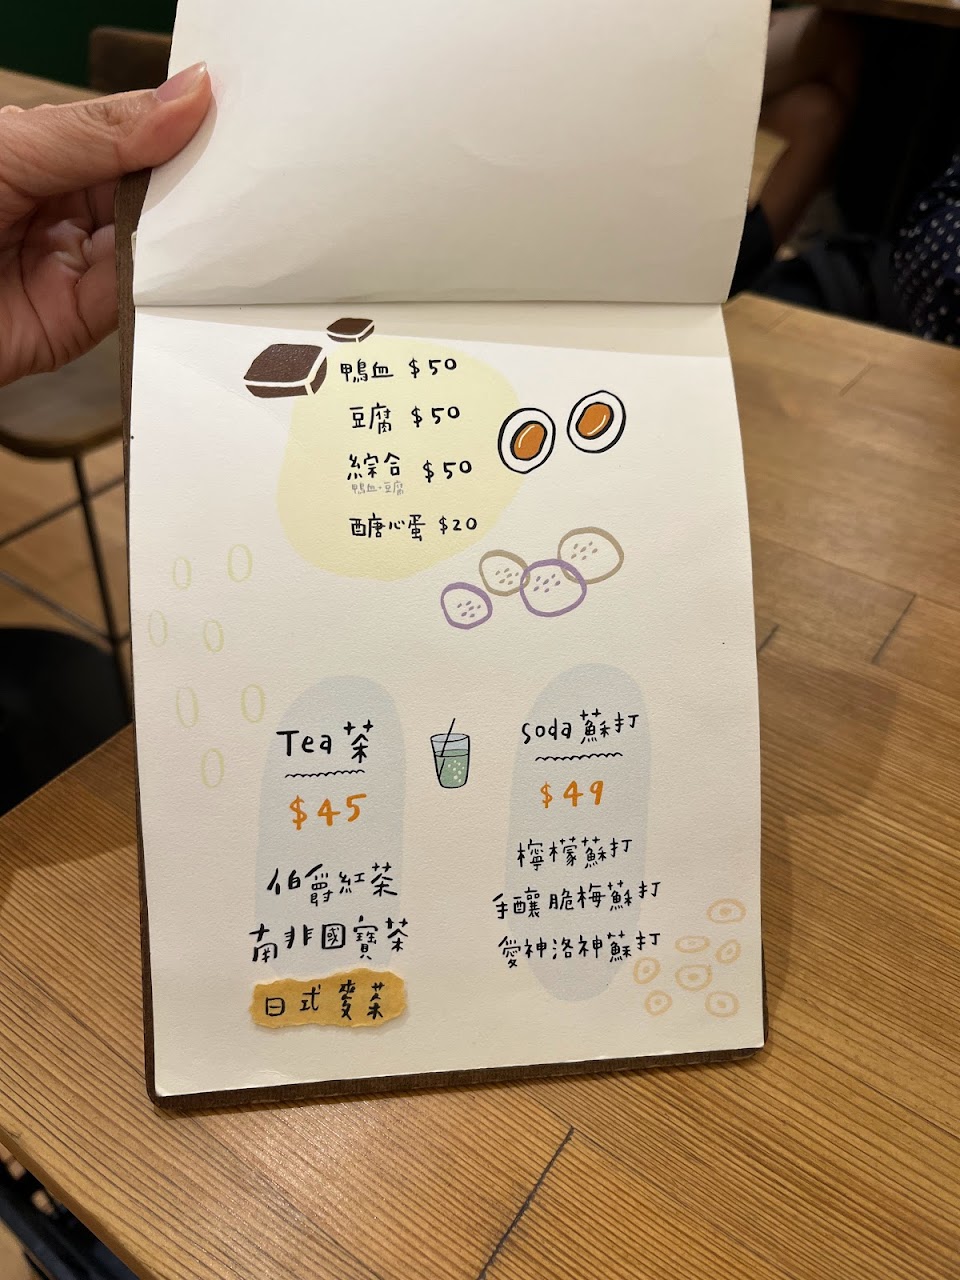 鴨血 $50
豆腐 $50
綜合 $50
鴨血+豆腐
醣心蛋 $20
Tea 茶
$45
伯爵紅茶
南非國寶茶
日式麥茶
Soda 蘇打
$49
檸檬蘇打
手釀脆梅蘇打
愛神洛神蘇打